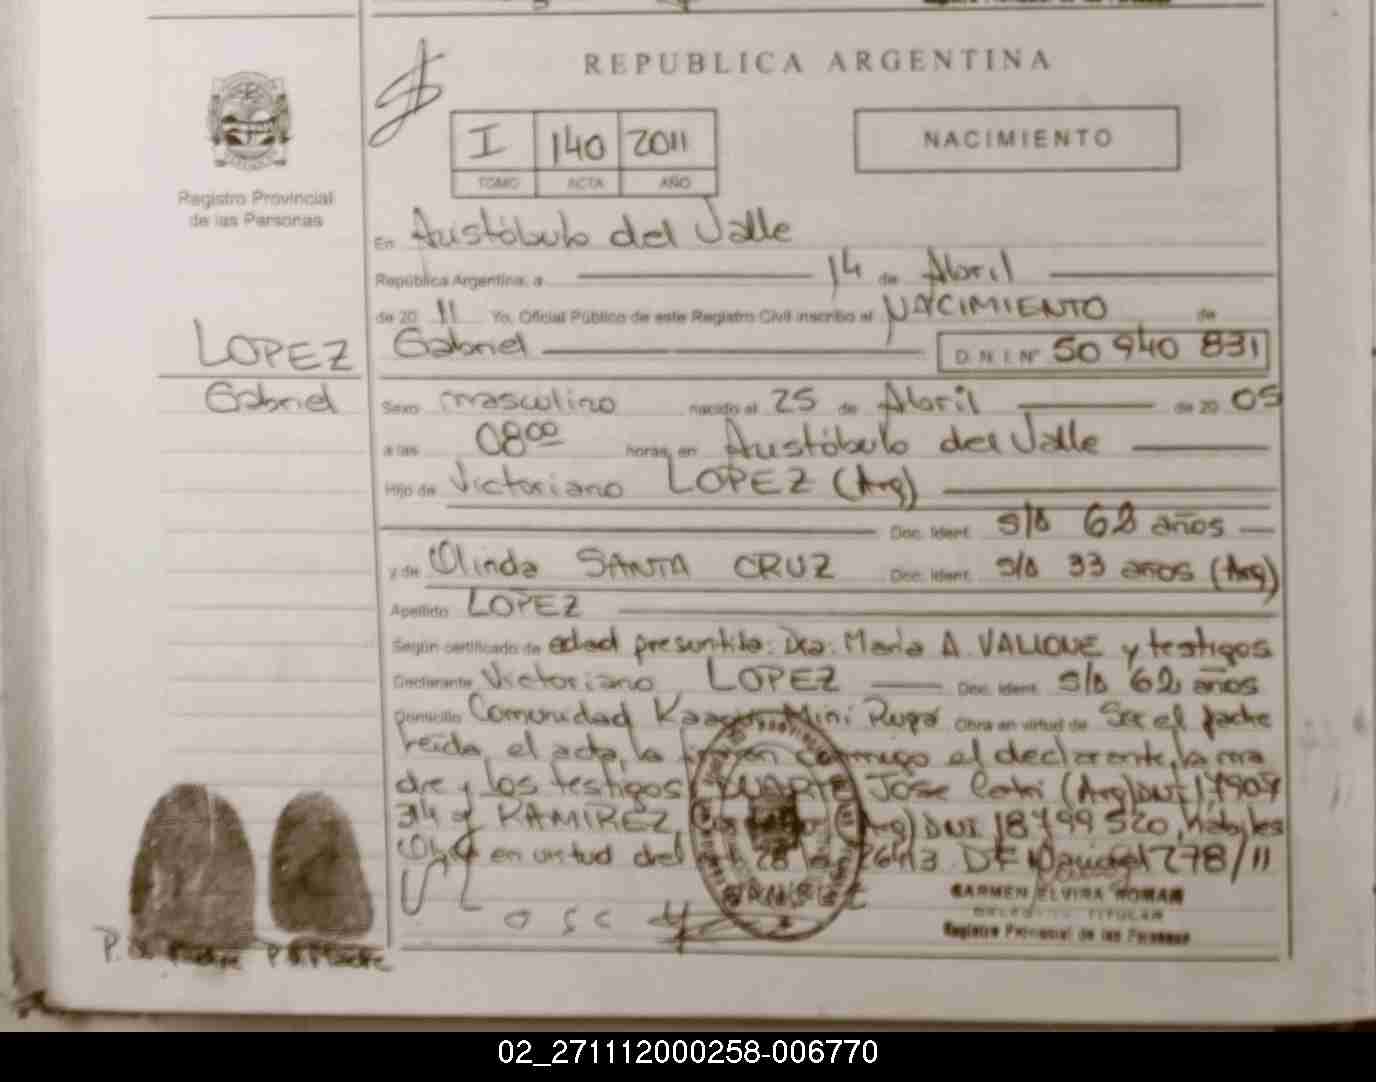 REPUBLICA ARGENTINA
I 140 2011
TOMO ACTA AÑO
NACIMIENTO
Registro Provincial
de las Personas
En Aristóbulo del Valle
República Argentina, a 14 de Abril
de 20 11 Yo, Oficial Público de este Registro Civil inscribo el NACIMIENTO de
LOPEZ
Gabriel
Gabriel D.N.I. Nº 50 940 831
Sexo masculino nacido el 25 de Abril de 20 05
a las 08 00 horas, en Aristóbulo del Valle
Hijo de Victoriano LOPEZ (Arg)
Doc. Ident. s/d 62 años
y de Olinda SANTA CRUZ Doc. Ident. s/d 33 años (Arg)
Apellido LOPEZ
Según certificado de edad presuntiva: Dra. María A. y testigos
Declarante Victoriano LOPEZ Doc. Ident. s/d 62 años
Domicilio Comunidad Mini Rupá Obra en virtud de Ser el padre
leída el acta, la firman conmigo el declarante, la ma
dre y los testigos DUARTE José (Arg) DNI
RAMIREZ, (Arg) DNI 18 799 520, hábiles
en virtud del 278/11
CARMEN ELVIRA ROMAN
DELEGADO TITULAR
Registro Provincial de las Personas
P. D. Padre P. D. Madre
02_271112000258-006770